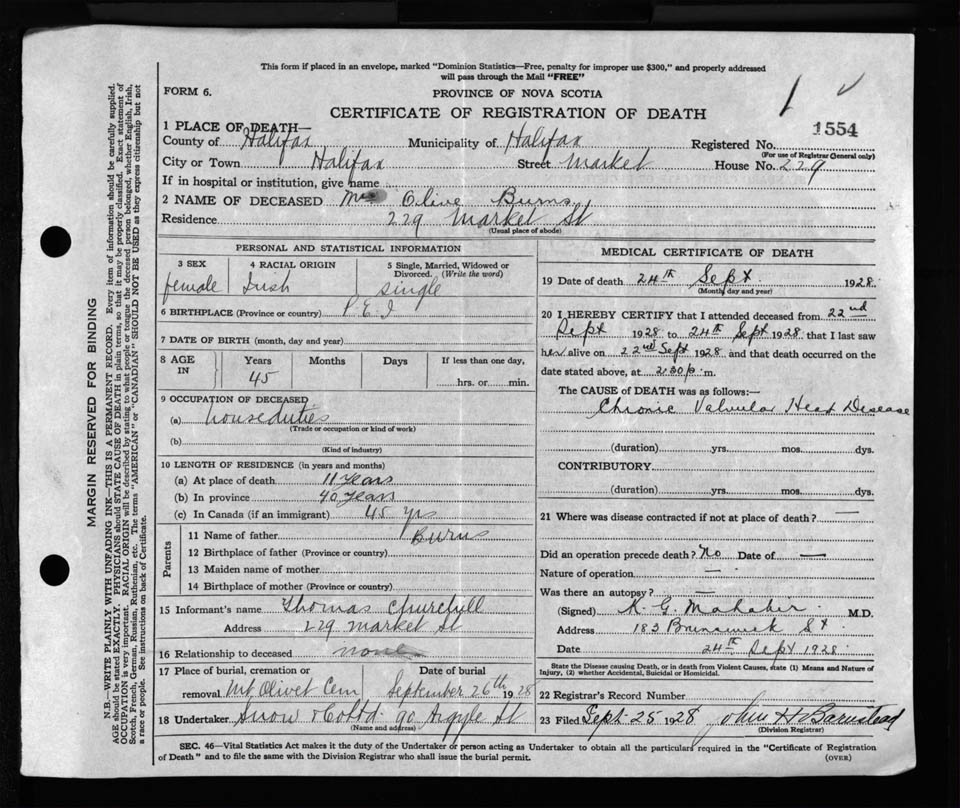 This form if placed in an envelope, marked "Dominion Statistics—Free, penalty for improper use $300," and properly addressed
will pass through the Mail "FREE"
FORM 6.
PROVINCE OF NOVA SCOTIA
CERTIFICATE OF REGISTRATION OF DEATH
1554
1 PLACE OF DEATH—
County of Halifax Municipality of Halifax Registered No.
(For use of Registrar General only)
City or Town Halifax Street Market House No. 229
If in hospital or institution, give name
2 NAME OF DECEASED Olive Burns
Residence 229 Market St
(Usual place of abode)
PERSONAL AND STATISTICAL INFORMATION
3 SEX 4 RACIAL ORIGIN 5 Single, Married, Widowed or
Divorced. (Write the word)
female Irish single
6 BIRTHPLACE (Province or country) P.E.I
7 DATE OF BIRTH (month, day and year)
8 AGE IN Years Months Days If less than one day,
45 hrs. or min.
9 OCCUPATION OF DECEASED
(a) houseduties
(Trade or occupation or kind of work)
(b)
(Kind of industry)
10 LENGTH OF RESIDENCE (in years and months)
(a) At place of death 11 Years
(b) In province 40 Years
(c) In Canada (if an immigrant) 45 yrs
Parents
11 Name of father Burns
12 Birthplace of father (Province or country)
13 Maiden name of mother
14 Birthplace of mother (Province or country)
15 Informant's name Thomas Churchill
Address 229 Market St
16 Relationship to deceased none
17 Place of burial, cremation or Date of burial
removal Mt Olivet Cem September 26th 1928
18 Undertaker Snow & Co Ltd 90 Argyle St
(Name and address)
MEDICAL CERTIFICATE OF DEATH
19 Date of death 24th Sept 1928.
(Month, day and year)
20 I HEREBY CERTIFY that I attended deceased from 22nd
Sept 1928 to 24th Sept 1928 that I last saw
her alive on 22nd Sept 1928 and that death occurred on
date stated above, at 2.30 p. m.
The CAUSE OF DEATH was as follows:—
Chronic Valvular Heart Disease
(duration) yrs. mos. dys.
CONTRIBUTORY
(duration) yrs. mos. dys.
21 Where was disease contracted if not at place of death? —
Did an operation precede death? No Date of —
Nature of operation —
Was there an autopsy? —
(Signed) K. G. Mahabir M.D.
Address 183 Brunswick St
Date 24th Sept 1928
State the Disease causing Death, or in death from Violent Causes, state (1) Means and Nature of
Injury, (2) whether Accidental, Suicidal or Homicidal.
22 Registrar's Record Number
23 Filed Sept 25 1928 John H Barnstead
(Division Registrar)
SEC. 46—Vital Statistics Act makes it the duty of the Undertaker or person acting as Undertaker to obtain all the particulars required in the "Certificate of Registration
of Death" and to file the same with the Division Registrar who shall issue the burial permit. (OVER)
MARGIN RESERVED FOR BINDING
N.B.—WRITE PLAINLY WITH UNFADING INK—THIS IS A PERMANENT RECORD. Every item of information should be carefully supplied.
AGE should be stated EXACTLY. PHYSICIANS should STATE CAUSE OF DEATH in plain terms, so that it may be properly classified. Exact statement of
OCCUPATION is very important. RACIAL ORIGIN will be described by stating to what people or tongue the deceased person belonged, whether English, Irish,
Scotch, French, German, Russian, Ruthenian, etc. The terms "AMERICAN" or "CANADIAN" SHOULD NOT BE USED as they express citizenship but not
a race or people. See instructions on back of Certificate.